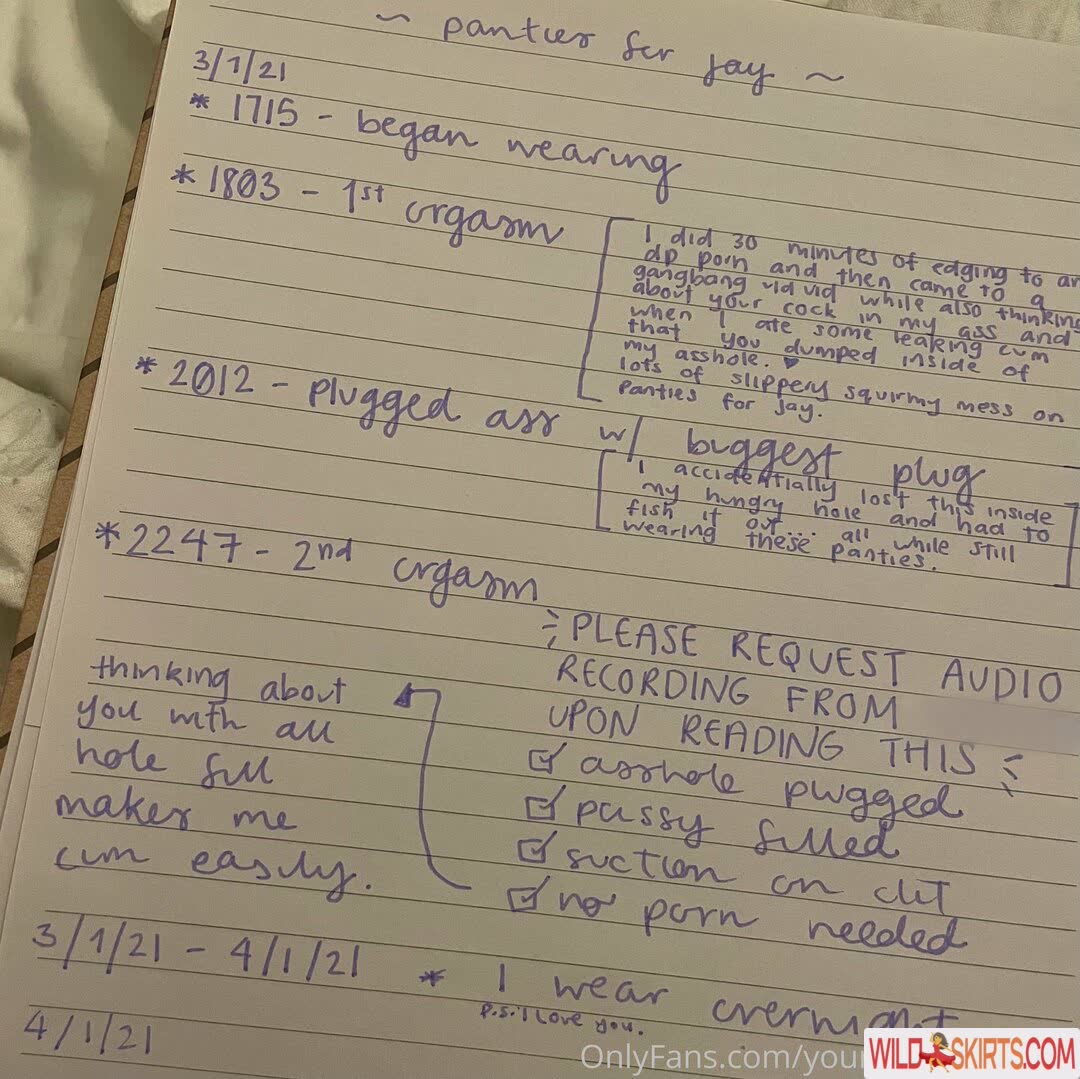 ~ panties for jay ~
3/1/21
* 1715 - began wearing
* 1803 - 1st orgasm
I did 30 minutes of edging to
dp porn and then came to a
gangbang vid vid while also thinking
about your cock in my ass and
when I ate some leaking cum
that you dumped inside of
my asshole. ♥
lots of slippery squirmy mess on
panties for jay.
* 2012 - plugged ass w/ biggest plug
I accidentially lost this inside
my hungry hole and had to
fish it out... all while still
wearing these panties.
* 2247 - 2nd orgasm
PLEASE REQUEST AUDIO
RECORDING FROM
UPON READING THIS
☑ asshole plugged
☑ pussy filled
☑ suction on clit
☑ no porn needed
thinking about
you with all
hole full
makes me
cum easily.
3/1/21 - 4/1/21 * I wear overnight
p.s. I love you.
4/1/21
OnlyFans.com/your
WILDSKIRTS.COM